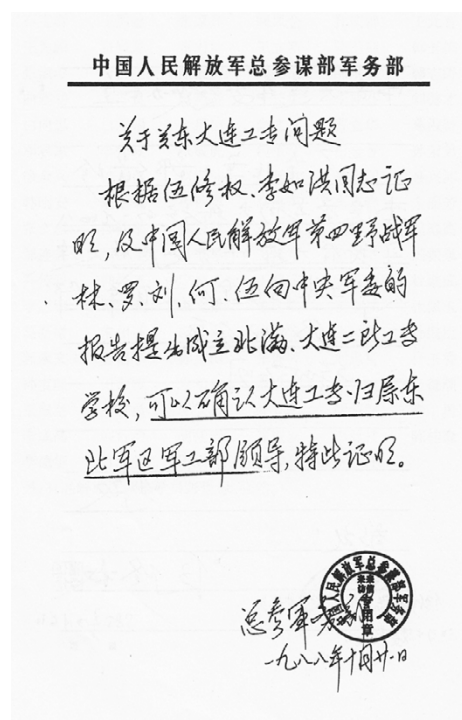 中国人民解放军总参谋部军务部
关于关东大连工专问题
根据伍修权、李如洪同志证
明,及中国人民解放军第四野战军
林、罗、刘、何、伍向中央军委的
报告提出成立北满、大连二所工专
学校,可以确认大连工专归属东
北军区军工部领导,特此证明。
中国人民解放军总参谋部军务部
专用章
总参军务部
一九八八年十月廿一日